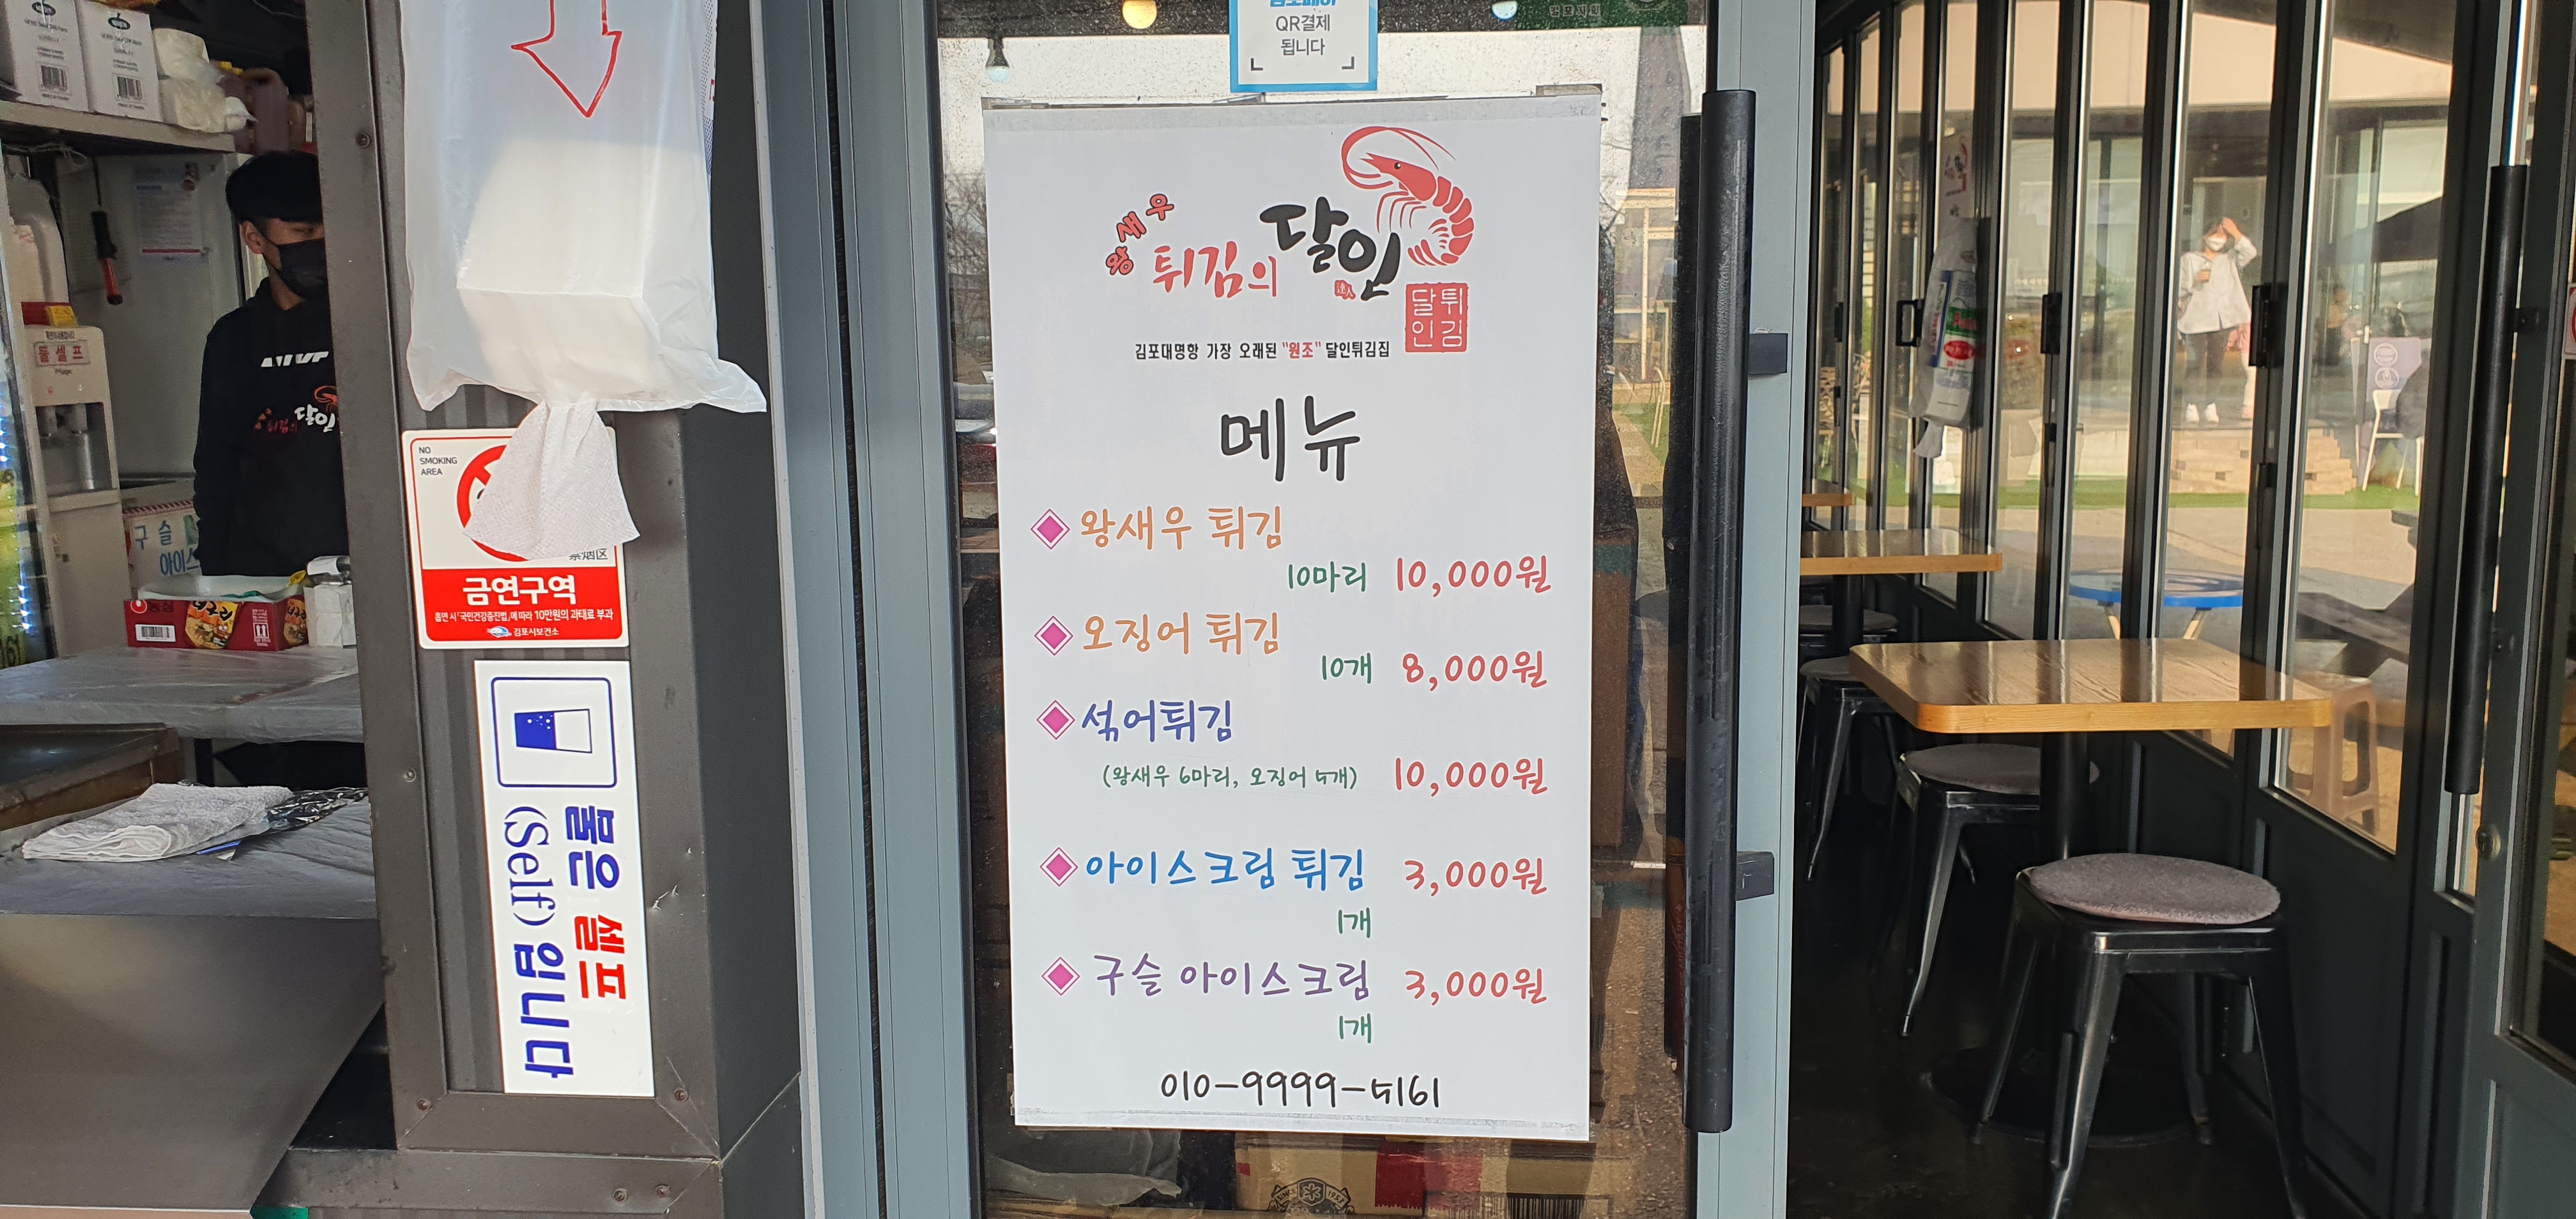 QR결제
됩니다
왕새우
튀김의 달인
튀김
달인
김포대명항 가장 오래된 "원조" 달인튀김집
메뉴
왕새우 튀김
10마리 10,000원
오징어 튀김
10개 8,000원
섞어튀김
(왕새우 6마리, 오징어 5개) 10,000원
아이스크림 튀김 3,000원
1개
구슬 아이스크림 3,000원
1개
010-9999-5161
NO
SMOKING
AREA
금연구역
흡연 시 「국민건강증진법」에 따라 10만원의 과태료 부과
김포시보건소
물은 셀프
(Self) 입니다
물 셀프
튀김의 달인
구슬
아이스
농심
너구리